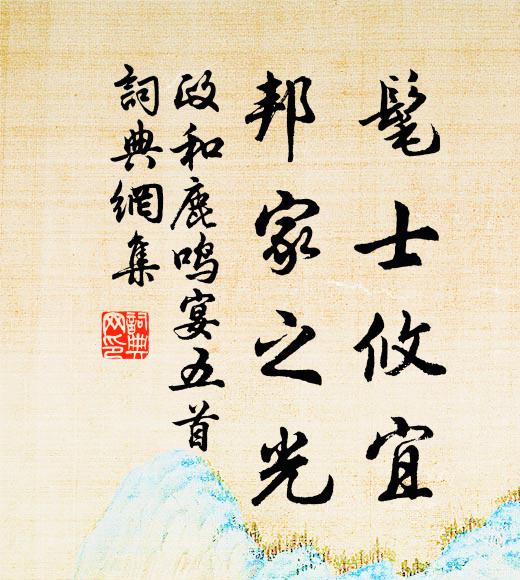 髦士攸宜
邦家之光
政和鹿鸣宴五首
詞典網集
詞典网印